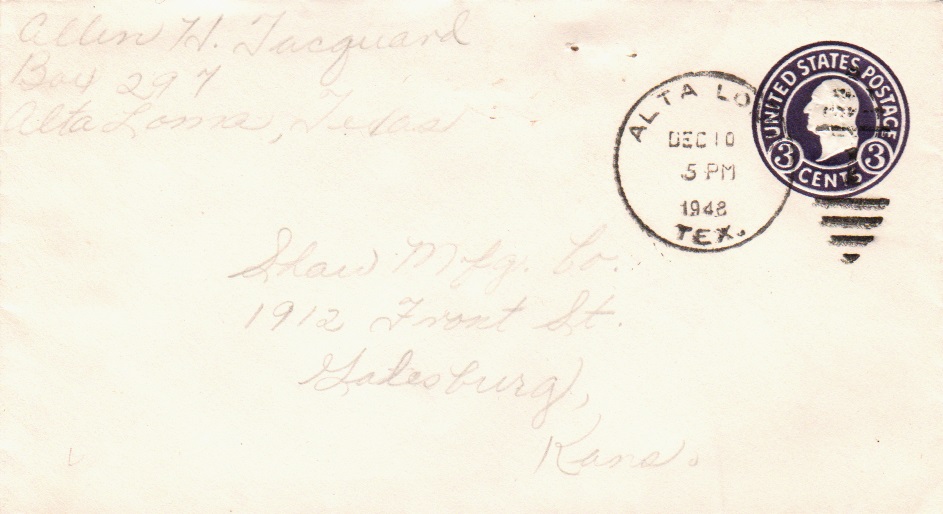 Allen H. Tacquard
Box 297
Alta Loma, Texas
ALTA LO
DEC 10
5 PM
1948
TEX.
UNITED STATES POSTAGE
3 CENTS 3
Shaw Mfg. Co.
1912 Front St.
Galesburg,
Kans.